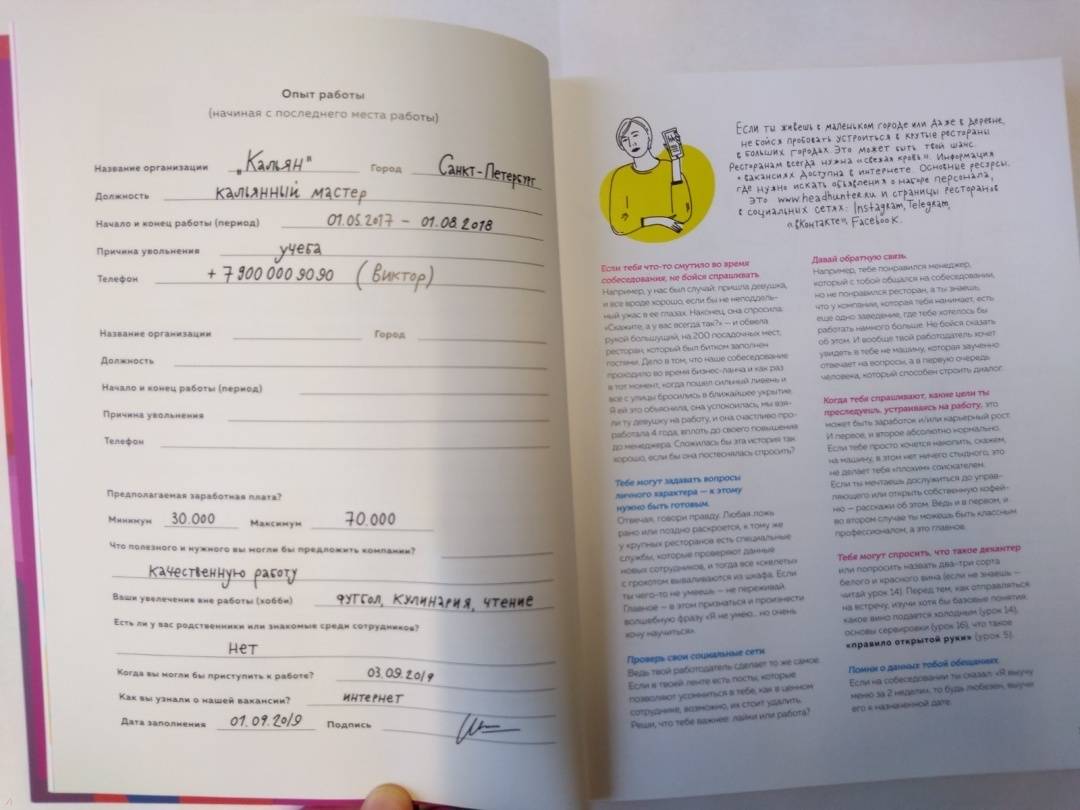 Опыт работы
(начиная с последнего места работы)
Название организации „Кальян" Город Санкт-Петербург
Должность кальянный мастер
Начало и конец работы (период) 01.05.2017 – 01.08.2018
Причина увольнения учеба
Телефон +7 900 000 90 90 (Виктор)
Название организации Город
Должность
Начало и конец работы (период)
Причина увольнения
Телефон
Предполагаемая заработная плата?
Минимум 30.000 Максимум 70.000
Что полезного и нужного вы могли бы предложить компании?
качественную работу
Ваши увлечения вне работы (хобби) футбол, кулинария, чтение
Есть ли у вас родственники или знакомые среди сотрудников?
нет
Когда вы могли бы приступить к работе? 03.09.2019
Как вы узнали о нашей вакансии? интернет
Дата заполнения 01.09.2019 Подпись
Если ты живешь в маленьком городе или даже в деревне,
не бойся пробовать устроиться в крутые рестораны
в больших городах. Это может быть твой шанс.
Ресторанам всегда нужна «свежая кровь». Информация
о вакансиях доступна в интернете. Основные ресурсы,
где нужно искать объявления о наборе персонала,
это www.headhunter.ru и страницы ресторанов
в социальных сетях: Instagram, Telegram,
«ВКонтакте», Facebook.
Если тебя что-то смутило во время
собеседования, не бойся спрашивать
Например, у нас был случай: пришла девушка,
и все вроде хорошо, если бы не неподдель-
ный ужас в ее глазах. Наконец, она спросила:
«Скажите, а у вас всегда так?» — и обвела
рукой большущий, на 200 посадочных мест,
ресторан, который был битком заполнен
гостями. Дело в том, что наше собеседование
проходило во время бизнес-ланча и как раз
в тот момент, когда пошел сильный ливень и
все с улицы бросились в ближайшее укрытие.
Я ей это объяснила, она успокоилась, мы взя-
ли ту девушку на работу, и она счастливо про-
работала 4 года, вплоть до своего повышения
до менеджера. Сложилась бы эта история так
хорошо, если бы она постеснялась спросить?
Тебе могут задавать вопросы
личного характера — к этому
нужно быть готовым.
Отвечая, говори правду. Любая ложь
рано или поздно раскроется, к тому же
у крупных ресторанов есть специальные
службы, которые проверяют данные
новых сотрудников, и тогда все «скелеты»
с грохотом вываливаются из шкафа. Если
ты чего-то не умеешь — не переживай.
Главное — в этом признаться и произнести
волшебную фразу «Я не умею... но очень
хочу научиться».
Проверь свои социальные сети.
Ведь твой работодатель сделает то же самое.
Если в твоей ленте есть посты, которые
позволяют усомниться в тебе, как в ценном
сотруднике, возможно, их стоит удалить.
Реши, что тебе важнее: лайки или работа?
Давай обратную связь.
Например, тебе понравился менеджер,
который с тобой общался на собеседовании,
но не понравился ресторан, а ты знаешь,
что у компании, которая тебя нанимает, есть
еще одно заведение, где тебе хотелось бы
работать намного больше. Не бойся сказать
об этом. И вообще твой работодатель хочет
увидеть в тебе не машину, которая заученно
отвечает на вопросы, а в первую очередь
человека, который способен строить диалог.
Когда тебя спрашивают, какие цели ты
преследуешь, устраиваясь на работу, это
может быть заработок и/или карьерный рост.
И первое, и второе абсолютно нормально.
Если тебе просто хочется накопить, скажем,
на машину, в этом нет ничего стыдного, это
не делает тебя «плохим» соискателем.
Если ты мечтаешь дослужиться до управ-
ляющего или открыть собственную кофей-
ню — расскажи об этом. Ведь и в первом, и
во втором случае ты можешь быть классным
профессионалом, а это главное.
Тебя могут спросить, что такое декантер
или попросить назвать два-три сорта
белого и красного вина (если не знаешь —
читай урок 14). Перед тем, как отправляться
на встречу, изучи хотя бы базовые понятия:
какое вино подается холодным (урок 14),
основы сервировки (урок 16), что такое
«правило открытой руки» (урок 5).
Помни о данных тобой обещаниях.
Если на собеседовании ты сказал: «Я выучу
меню за 2 недели», то будь любезен, выучи
его к назначенной дате.